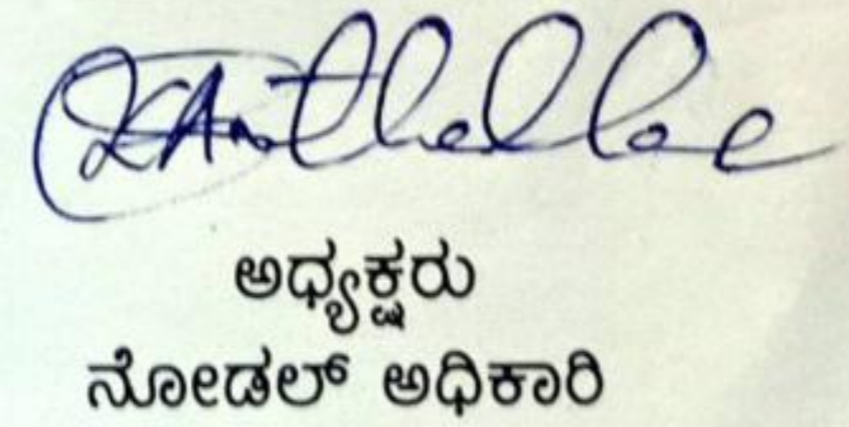 ಅಧ್ಯಕ್ಷರು
ನೋಡಲ್ ಅಧಿಕಾರಿ